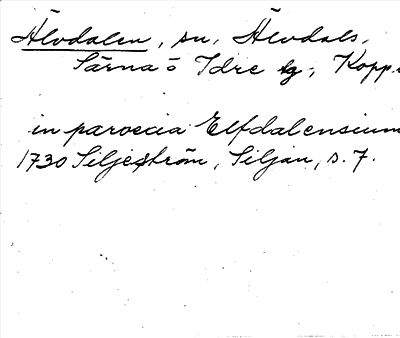 Älvdalen, sn, Älvdals,
Särna o Idre tg, Kopp.
in paroecia Elfdalensium
1730 Siljeström, Siljan, s. 7.